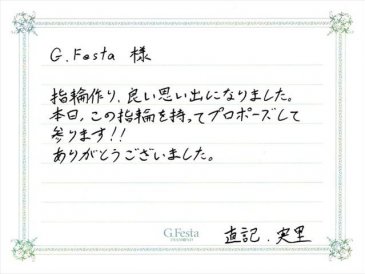 G.Festa 様
指輪作り、良い思い出になりました。
本日、この指輪を持ってプロポーズして
参ります!!
ありがとうございました。
G.Festa
直記、実里